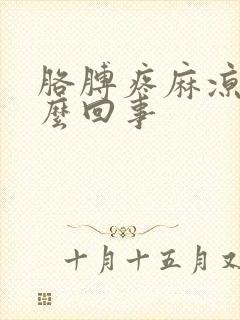 胳膊疼麻凉
麼回事
十月十五月又